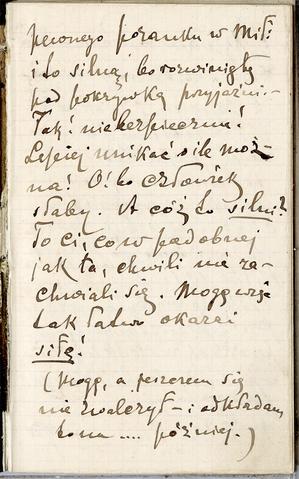 pewnego poranku w Mił:
i to silną, bo rozwiniętą
pod pokrywką przyjaźni.-
Tak! niebezpiecznie!
Lepiej unikać o ile moż-
na! O! bo człowiek
słaby. A cóż to silni?
To ci, co w podobnej
jak ta, chwili nie za-
chwiali się. Mogę więc
tak łatwo okazać
siłę!
(Mogę, a jeszczem się
nie zwalczył – i odkładam
to na .... później.)